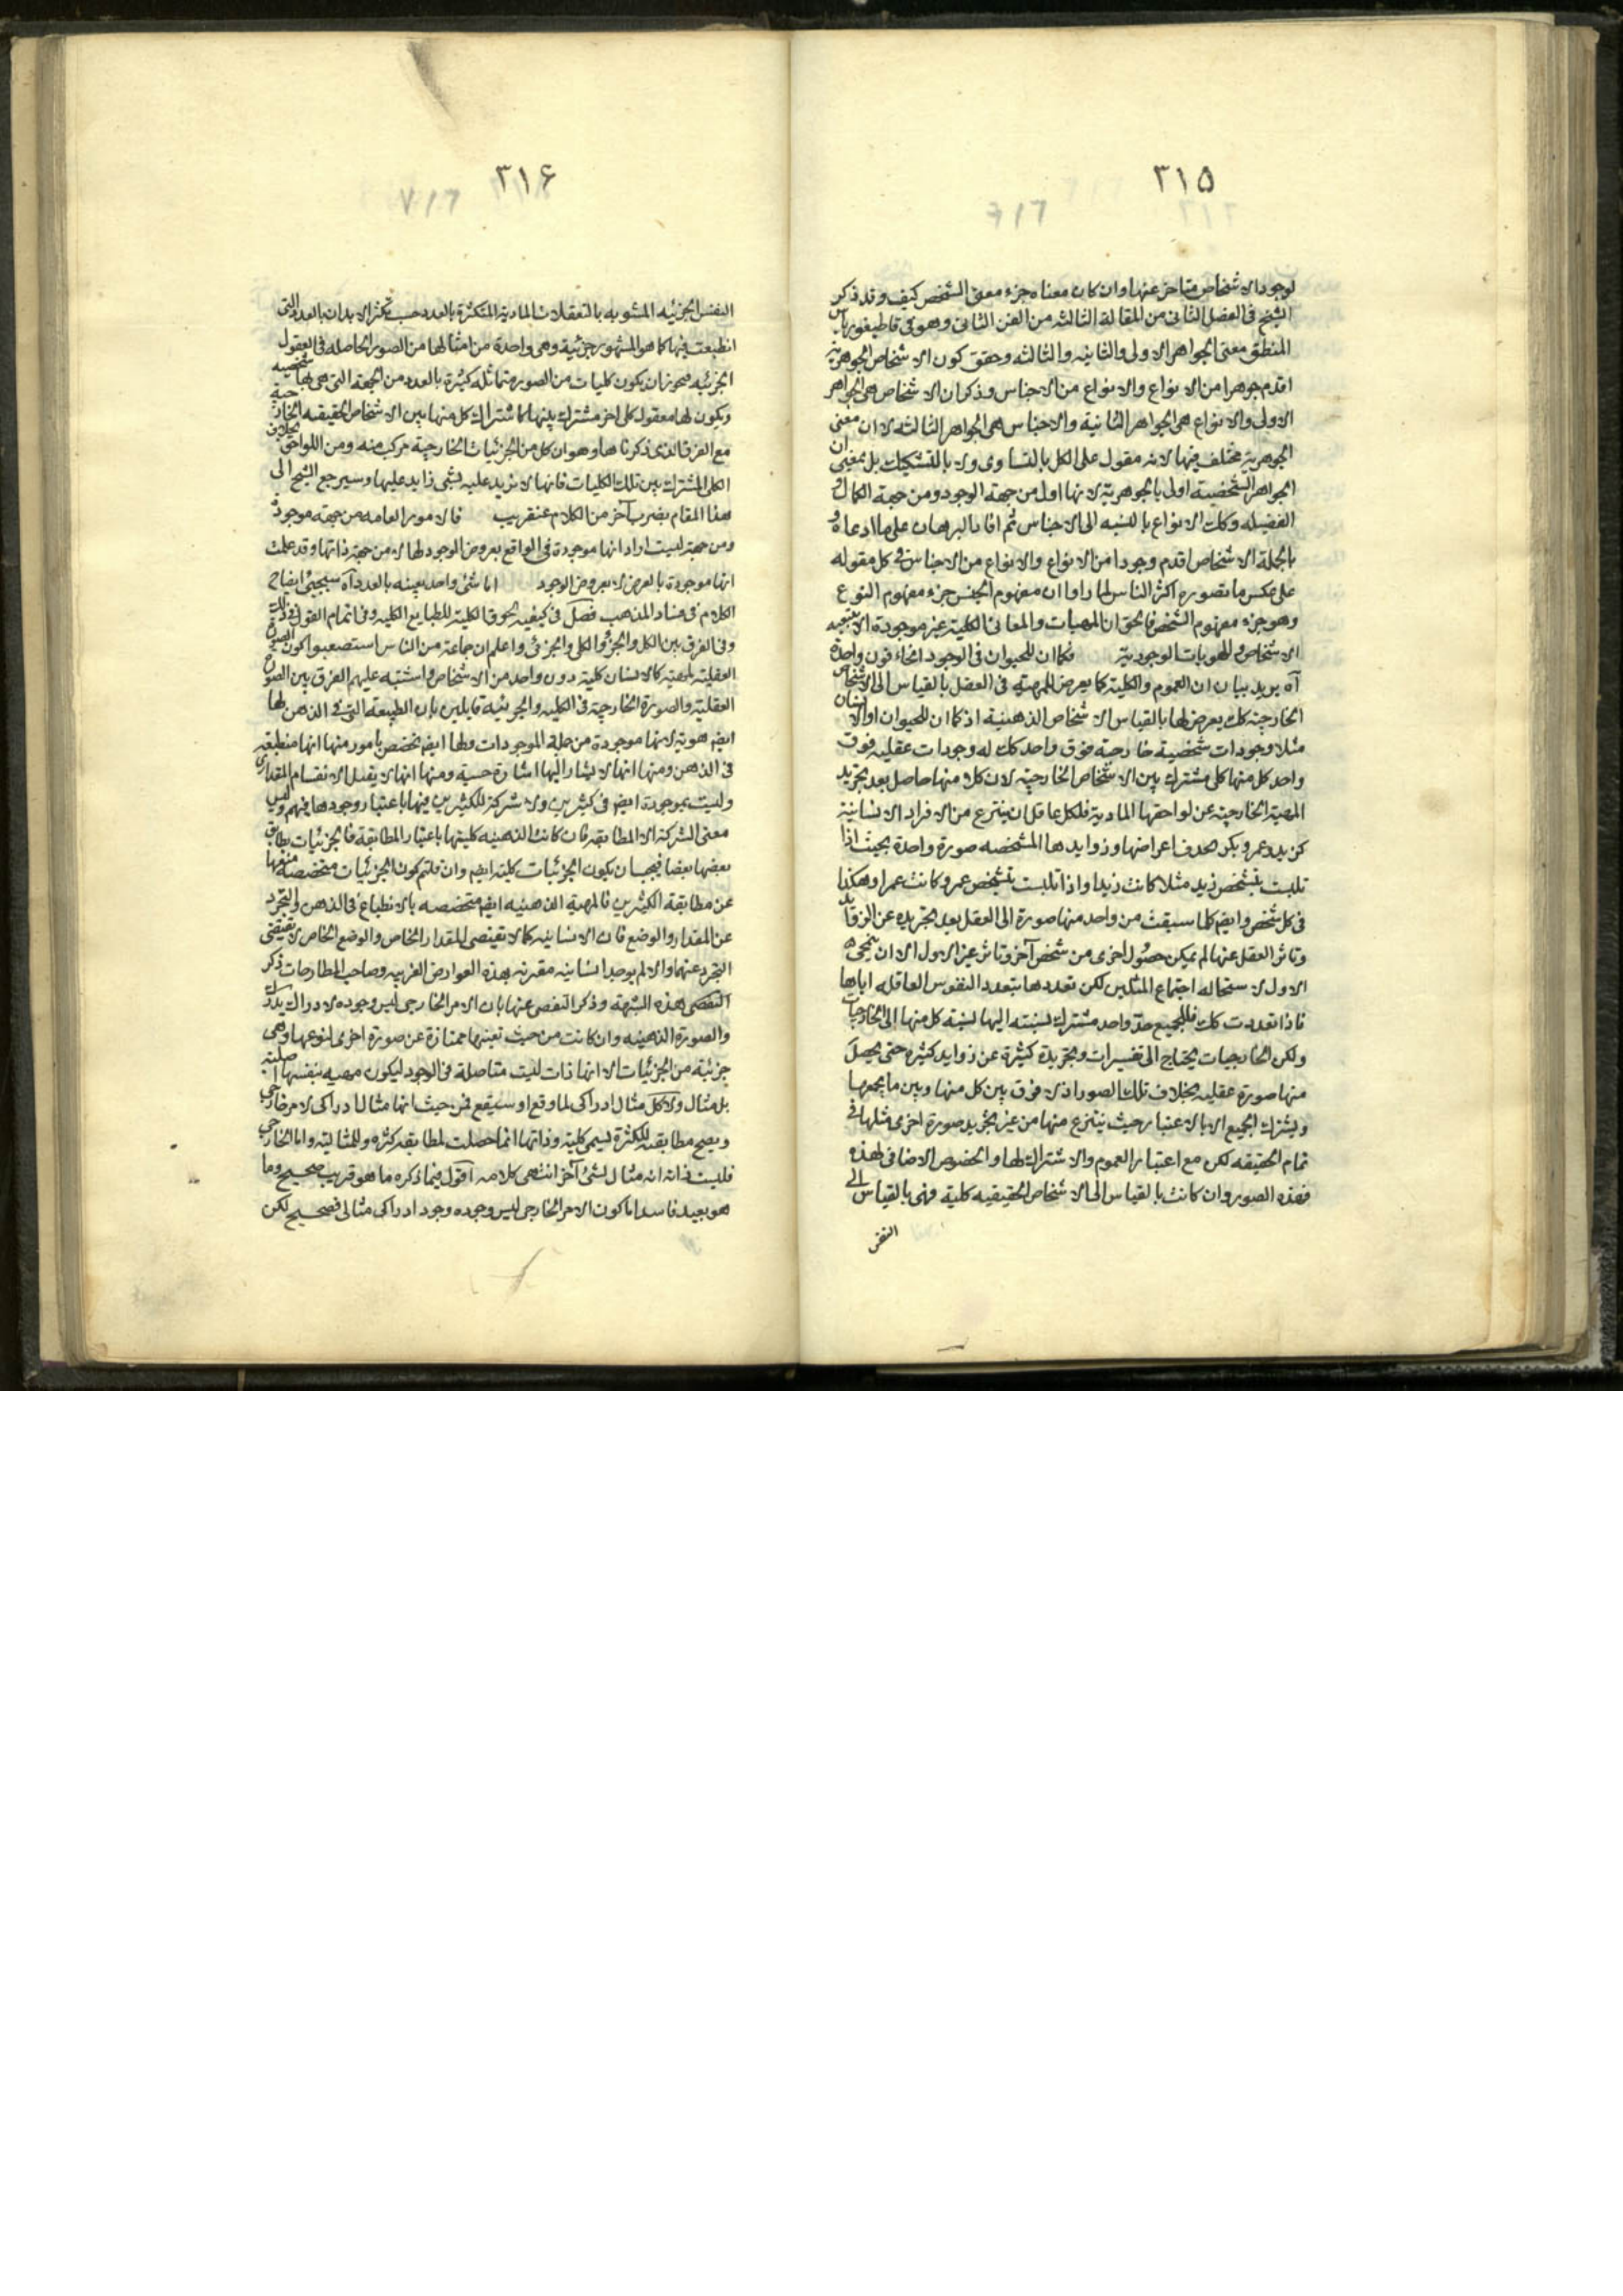 ٣١٥
لوجود الاشخاص متاخر عنها وان كان معناه جزء معنى الشخص كيف وقد ذكر
الشيخ فى الفصل الثانى من المقالة الثالثه من الفن الثانى وهو فى قاطيغورياس
المنطق معنى الجواهر الاولى والثانيه والثالثه وحقق كون الاشخاص الجوهرية
اقدم جوهرا من الانواع والانواع من الاجناس وذكر ان الاشخاص هى الجواهر
الاولى والانواع هى الجواهر الثانية والاجناس هى الجواهر الثالثه لا ان معنى
الجوهرية مختلف فيها لانه مقول على الكل بالتساوى ولا بالتشكيك بل بمعنى ان
الجواهر الشخصية اولى بالجوهرية لانها اول من جهة الوجود ومن جهة الكمال و
الفضيله وكك الانواع بالنسبه الى الاجناس ثم افاد البرهان على ما ادعاه و
بالجملة الاشخاص اقدم وجودا من الانواع والانواع من الاجناس فى كل مقوله
على عكس ما تصوره اكثر الناس لما راوا ان مفهوم الجنس جزء مفهوم النوع
وهو جزء مفهوم الشخص فالحق ان المهيات والمعانى الكلية غير موجودة الا بتبعية
الاشخاص والهويات الوجودية فكما ان للحيوان فى الوجود انحاء فوق واحدة
آه يريد بيان ان العموم والكلية كما يعرض للمهية فى العقل بالقياس الى الاشخاص
الخارجية كك يعرض لها بالقياس الاشخاص الذهنية اذ كما ان للحيوان او الانسان
مثلا وجودات شخصية خارجية فوق واحد كك له وجودات عقليه فوق
واحد كل منها كلى مشترك بين الاشخاص الخارجية لان كلا منها حاصل بعد تجريد
المهية الخارجية عن لواحقها المادية فلكل عاقل ان ينتزع من الافراد الانسانية
كزيد وعمرو بكر بحذف اعراضها وزوايدها المشخصه صورة واحدة بحيث اذا
تلبست بتشخص زيد مثلا كانت زيدا واذا تلبست بتشخص عمرو كانت عمرا وهكذا
فى كل شخص وايضا كلما سبقت من واحد منها صورة الى العقل بعد تجريده عن الزوايد
وتاثر العقل عنها لم يمكن حصول اخرى من شخص آخر وتاثر غير الاول الا ان ينمحى
الاول لاستحاله اجتماع المثلين لكن تعددها بتعدد النفوس العاقله اياها
فاذا تعددت كك فللجميع حد واحد مشترك نسبته اليها نسبة كل منها الى الخارجيات
ولكن الخارجيات يحتاج الى تقسيرات وتجريدة كثيرة عن زوايد كثيره حتى يحصل
منها صورة عقليه بخلاف تلك الصور اذ لا فرق بين كل منها وبين ما يجمعها
ويشترك الجميع الا بالاعتبار حيث ينتزع منها من غير تجريد صورة اخرى مثلها فى
تمام الحقيقه لكن مع اعتبار العموم والاشتراك لها والخصوص الاضافى لهذه
فهذه الصور وان كانت بالقياس الى الاشخاص الحقيقيه كلية فهى بالقياس الى
النفس
٣١۶
النفس الجزئيه المشوبه بالتعقلات المادية المتكثرة بالعدد حسب تكثر الابدان بالعدد التى
انطبعت فيها كما هو المشهور جزئية وهى واحدة من امثالها من الصور الحاصله فى العقول
الجزئيه فيجوز ان يكون كليات من الصور متماثله كثيرة بالعدد من الجهة التى هى بها شخصيه
ويكون لها معقول كلى اخر مشترك بينها كاشتراك كل منها بين الاشخاص الحقيقيه الخارجية
مع الفرق الذى ذكرناها وهو ان كل من الجزئيات الخارجية مركب منه ومن اللواحق بخلاف
الكلى المشترك بين تلك الكليات فانها لا يزيد عليه بشى زايد عليها وسيرجع الشيخ الى
هذا المقام بضرب آخر من الكلام عنقريب فالامور العامه من جهه موجودة
ومن جهة ليست اراد انها موجودة فى الواقع بعروض الوجود لها لا من جهة ذاتها وقد علمت
انها موجودة بالعرض لا بعروض الوجود اما شئ واحد بعينه بالعدد آه سيجيئ ايضاح
الكلام فى فساد المذهب فصل فى كيفيه لحوق الكلية للطبايع الكليه وفى اتمام القول فى ذلك
وفى الفرق بين الكل والجزؤ والكلى والجزئى واعلم ان جماعة من الناس استصعبوا كون الصورة
العقلية لمهية كالانسان كلية دون واحد من الاشخاص واشتبه عليهم الفرق بين الصورة
العقلية والصورة الخارجية فى الكليه والجزئية قايلين بان الطبيعة التى فى الذهن لها
ايضا هوية لانها موجودة من جملة الموجودات ولها ايضا تخصص بامور منها انها منطبعة
فى الذهن ومنها انها لا يشار اليها اشارة حسية ومنها انها لا يقبل الانقسام المقدارى
وليست بموجودة ايضا فى كثيرين ولا شركة للكثيرين فيها باعتبار وجودها فيهم وليس
معنى الشركة الا المطابقه فان كانت الذهنيه كليتها باعتبار المطابقة فالجزئيات يطابق
بعضها بعضا فيجب ان يكون الجزئيات كلية ايضا وان قلتم كون الجزئيات متخصصة منعها
عن مطابقة الكثيرين فالمهية الذهنيه ايضا متخصصه بالانطباع فى الذهن والتجرد
عن المقدار والوضع فان الانسانيه كما لا تقتضى المقدار الخاص والوضع الخاص لا تقتضى
التجرد عنهما والا لم يوجد انسانيه مقترنه بهذه العوارض الغريبه وصاحب المطارحات ذكر
النقضى لهذه الشبهة وذكر التفصى عنها بان الامر الخارجى ليس وجوده لادراك
والصورة الذهنيه وان كانت من حيث تعينها ممتازة عن صورة اخرى لنوعها وهى
جزئية من الجزئيات الا انها ذات ليست متاصلة فى الوجود ليكون مهيه بنفسها اصلية
بل مثال ولا كل مثال ادراكى لما وقع او سيقع فمن حيث انها مثال ادراكى لامر خارجى
ويصح مطابقته للكثرة يسمى كلية وذاتها انما حصلت لمطابقة كثرة وللمثالية واما الخارجى
فليست ذاته انه مثال لشئ آخر انتهى كلامه اقول فيما ذكره ما هو قريب صحيح وما
هو بعيد فاسد اما كون الامر الخارجى ليس وجوده وجود ادراكى مثالى فصحيح لكن